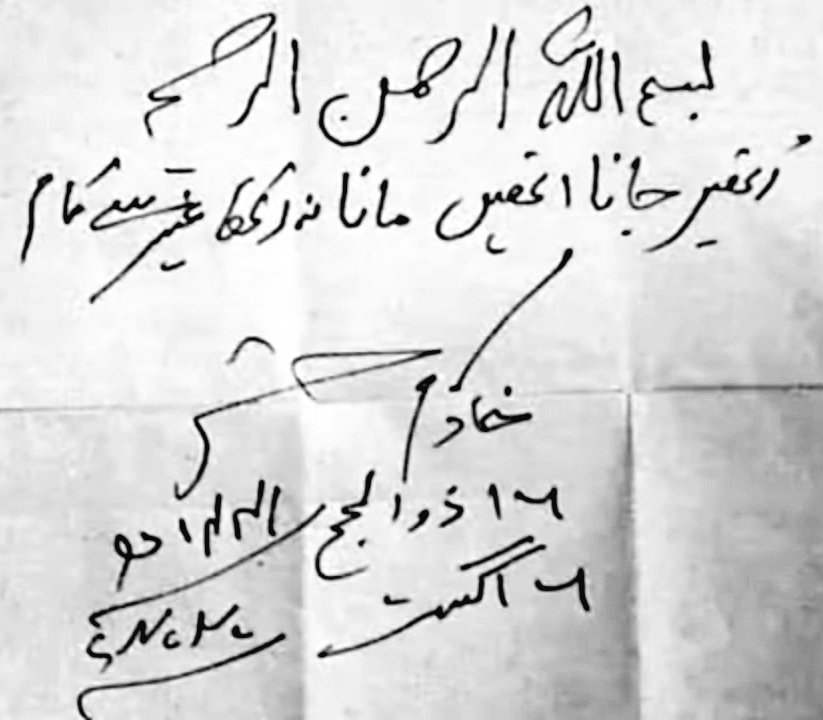 بسم اللہ الرحمن الرحیم
اُنھیں جانا انھیں مانا نہ رکھا غیر سے کام
خادم حسین
۱۶ ذوالحج ۱۴۴۱ھ
۶ اگست ۲۰۲۰ء